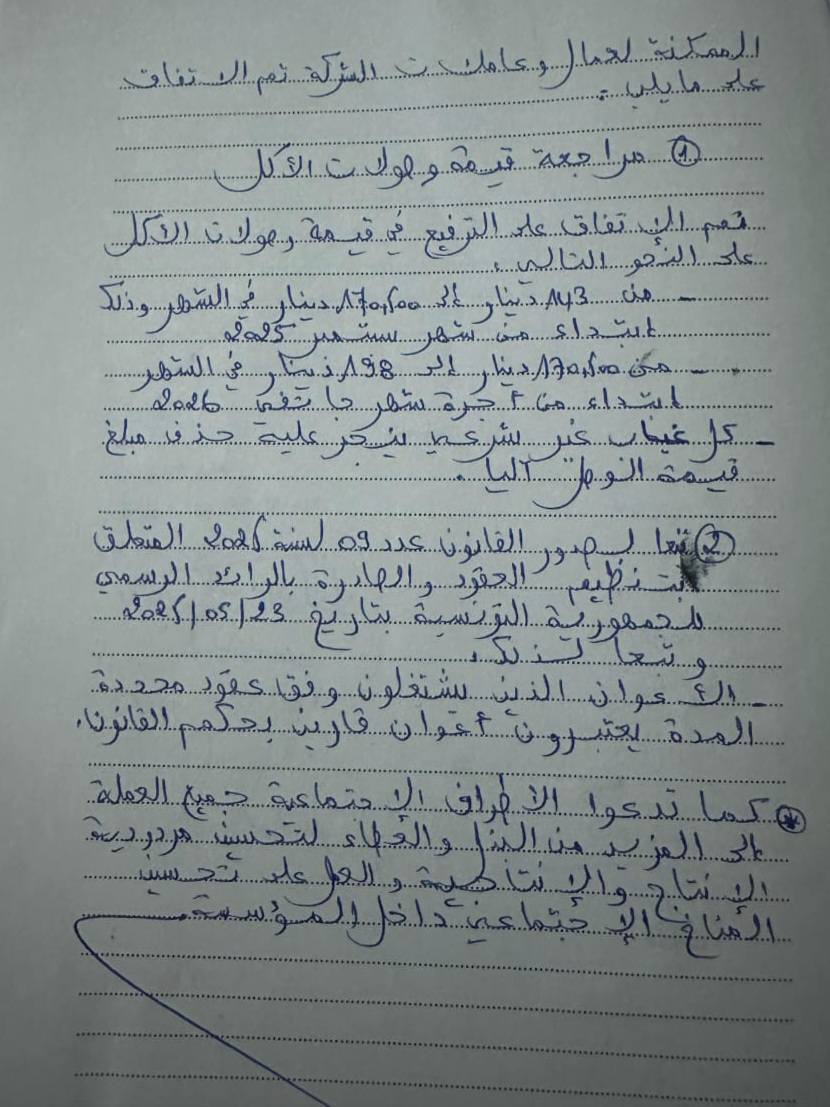 الممكنة لعمال وعاملات الشركة تم الاتفاق
على ما يلي :
① مراجعة قيمة وصولات الأكل
تم الاتفاق على الترفيع في قيمة وصولات الأكل
على النحو التالي :
- من 143 دينار إلى 170,500 دينار في الشهر وذلك
ابتداء من شهر سبتمبر 2025
- من 170,500 دينار إلى 198 دينار في الشهر
ابتداء من أجرة شهر جانفي 2026
- كل غياب غير شرعي ينجر عليه حذف مبلغ
قيمة الوصل آليا .
② تبعا لصدور القانون عدد 09 لسنة 2025 المتعلق
بتنظيم العقود والصادرة بالرائد الرسمي
للجمهورية التونسية بتاريخ 2025/05/23
وتبعا لذلك :
- الأعوان الذين يشتغلون وفق عقود محددة
المدة يعتبرون أعوان قارين بحكم القانون .
* كما تدعوا الأطراف الاجتماعية جميع العملة
إلى المزيد من البذل والعطاء لتحسين مردودية
الإنتاج والإنتاجية والعمل على تحسين
المناخ الاجتماعي داخل المؤسسة